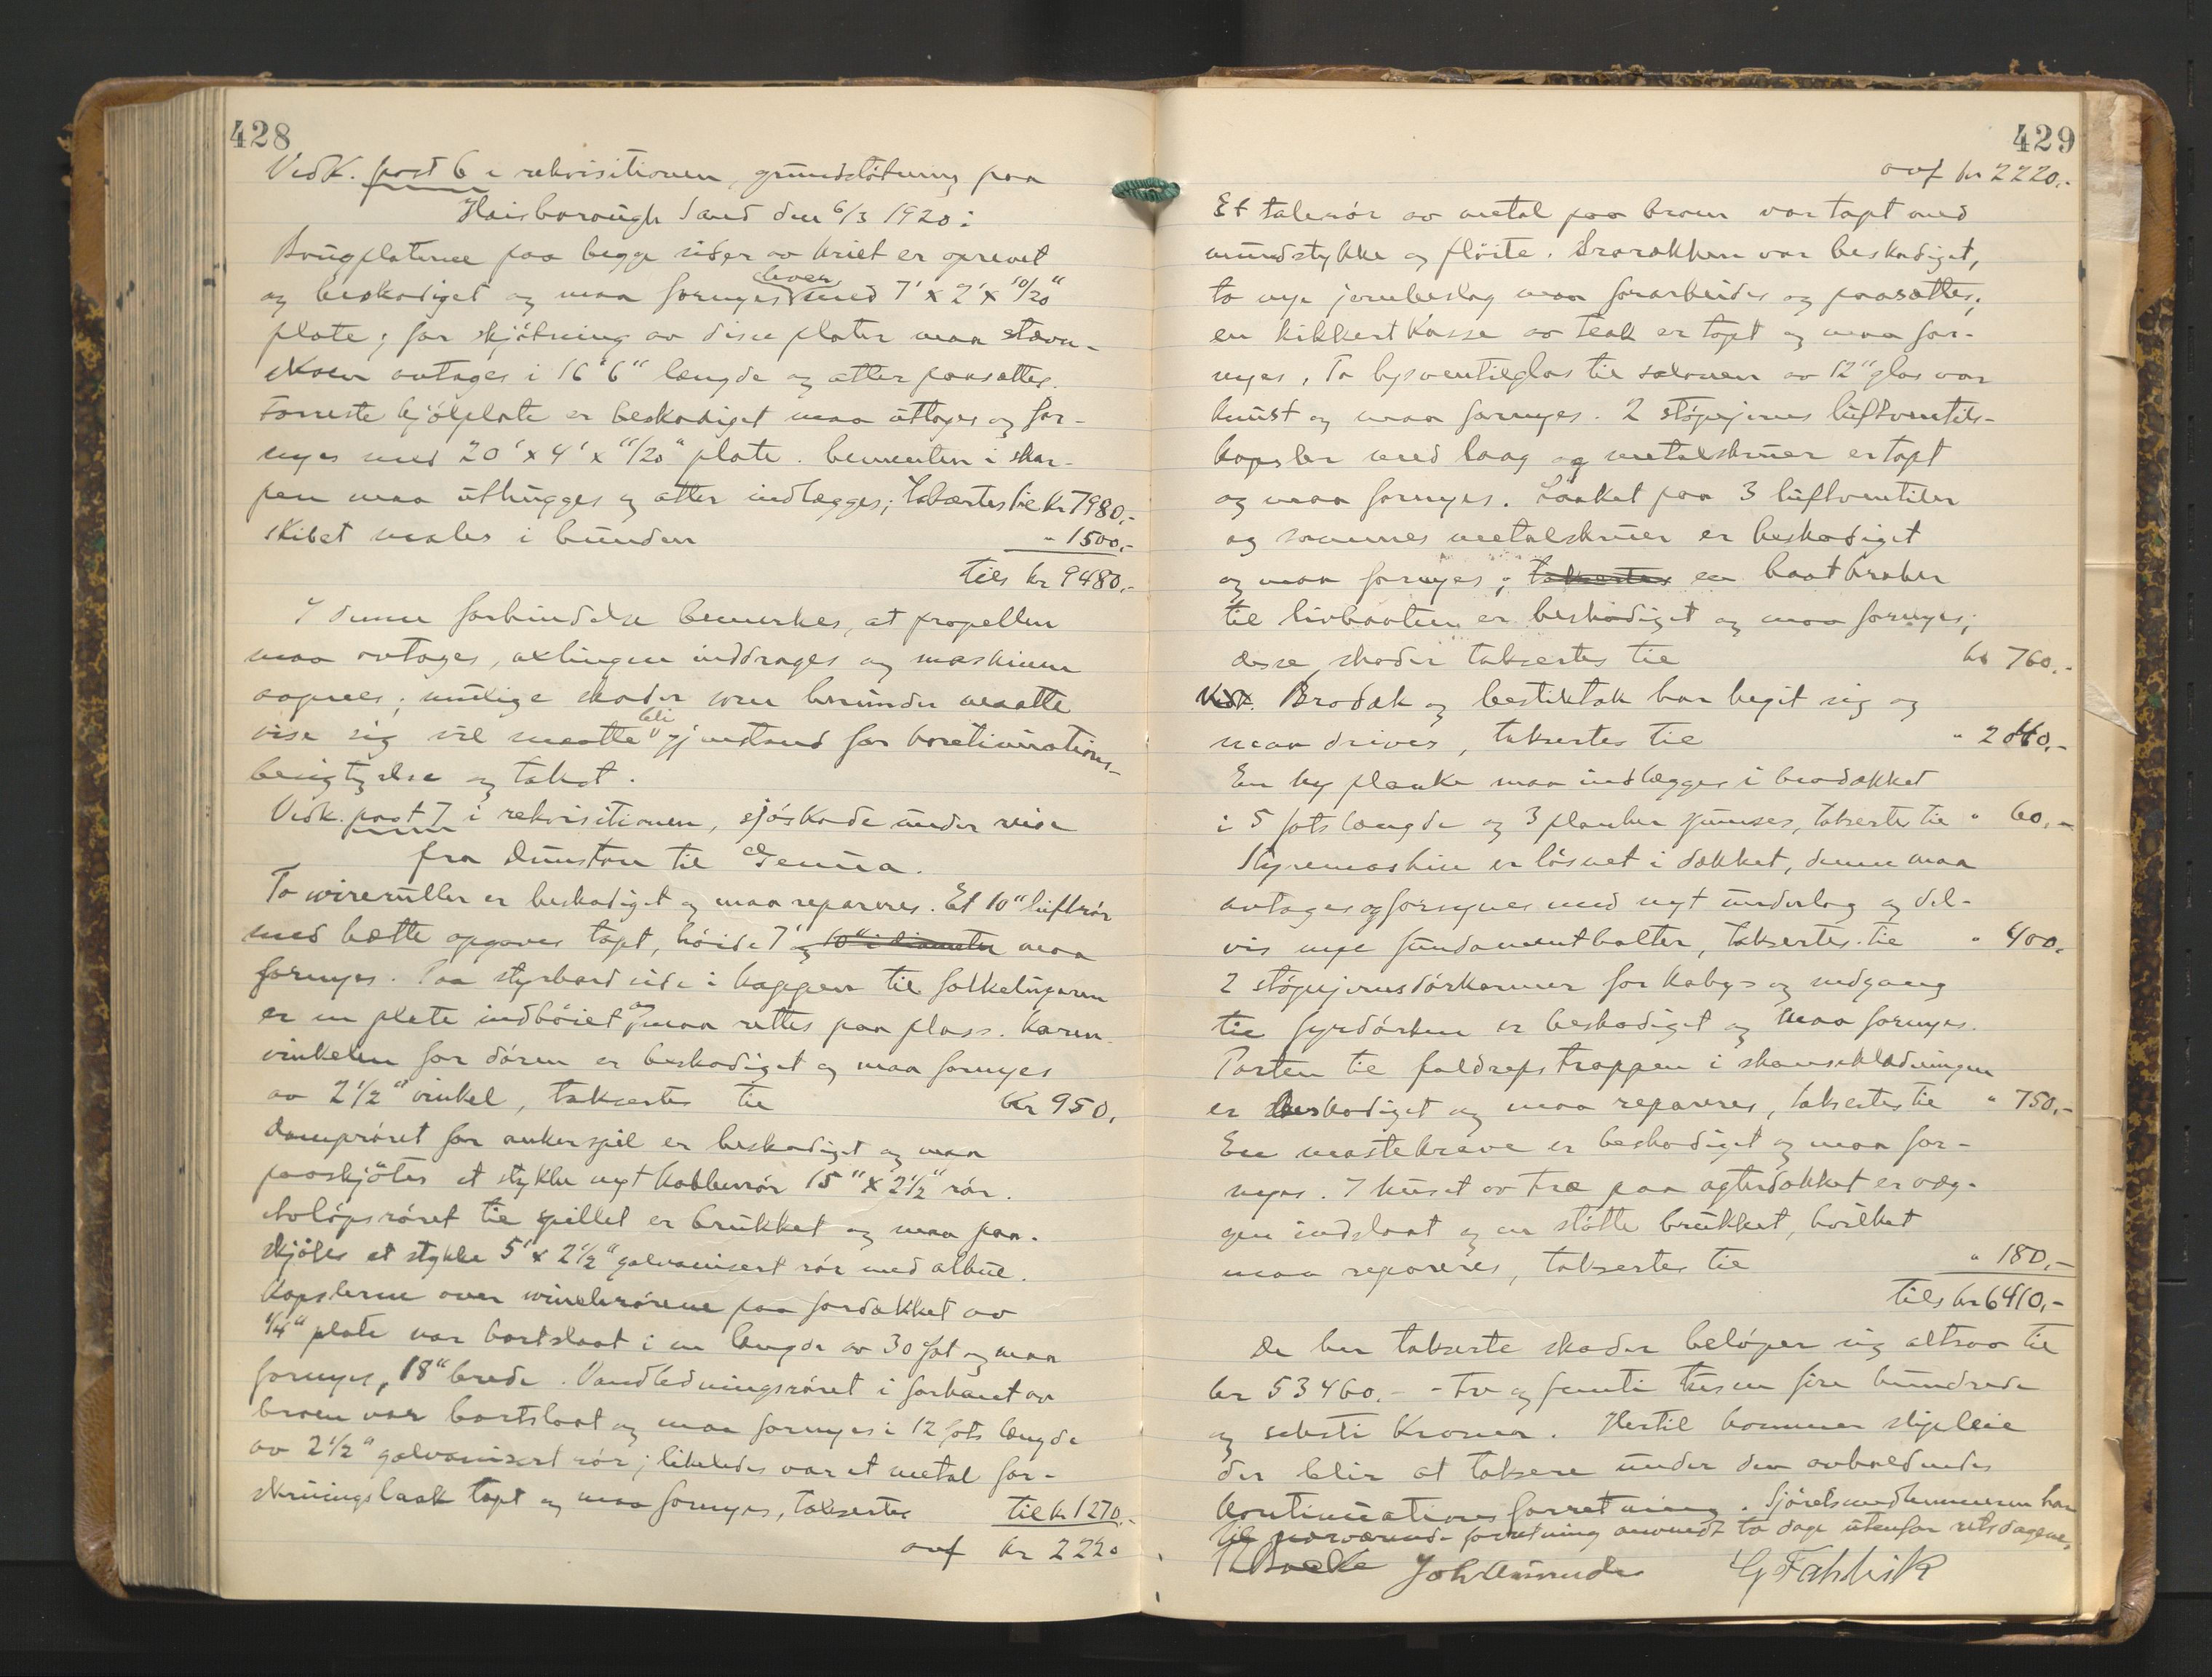 428
Vedk. post 6 i rekvisitionen, grundstötning paa
Haisborough Sand den 6/3 1920:
Baugplaterne paa begge sider av kriet er oprevet
og beskadiget og maa fornyes hver med 7' x 2' x 10/20"
plate; for skjötning av disse plater maa stævn-
skoen avtages i 16' 6" længde og atter paasættes.
Forreste kjölplate er beskadiget maa uttages og for-
nyes med 20' x 4' x 11/20" plate. Cementen i skar-
pen maa uthugges og atter indlægges; taksertes til kr 7980,-
Skibet males i bunden " 1500,-
tils kr 9480,-
I denne forbindelse bemerkes, at propellen
maa avtages, axlingen inddrages og maskinen
aapnes; mulige skader som herunder maatte
vise sig vil maatte bli gjenstand for kontinuations-
besigtigelse og takst.
Vedk. post 7 i rekvisitionen, sjöskade under reise
fra Dunston til Genua.
To wireruller er beskadiget og maa repareres. Et 10" luftrör
med hætte opgaves tapt, höide 7' og 10" i diameter maa
fornyes. Paa styrbord side i kappen til folkelugaren
er en plate indböiet og maa rettes paa plass. Karm-
vinkelen for dören er beskadiget og maa fornyes
av 2 1/2" vinkel, takserts til kr 950,
Damprøret for ankerspil er beskadiget og maa
paaskjötes et stykke nyt kobberrör 15" x 2 1/2" rör.
Avlöpsröret til spillet er brukket og maa paa-
skjötes et stykke 5' x 2 1/2" galvanisert rör med albue.
Kapslerne over winchrörene paa fordækket av
1/4" plate var bortslaat i en længde av 30 fot og maa
fornyes, 18" brede. Vandledningsröret i forkant av
broen var bortslaat og maa fornyes i 12 fots længde
av 2 1/2" galvanisert rör; likeledes var et metal for-
skruingslaak tapt og maa fornyes, taksertes til kr 1270,-
ovf kr 2220
429
ovf kr 2220,-
Et talerör av metal paa broen var tapt med
mundstykke og flöite. Brorækken var beskadiget,
to nye jernbeslag maa forarbeides og paasættes;
en kikkertkasse av teak er tapt og maa for-
nyes. To lysventilglas til salonen av 12" glas var
knust og maa fornyes. 2 stöpejerns luftventils-
kapsler med laag og metalskruer er tapt
og maa fornyes. Laaket paa 3 luftventiler
og sammes metalskruer er beskadiget
og maa fornyes; takserts en baatkraber
til livbaaten er beskadiget og maa fornyes;
disse skader taksertes til kr 760,-
Vedk. Brodæk og bestikdæk har begit sig og
maa drives, taksertes til " 2040,-
En ny planke maa indlægges i brodækket
i 5 fots længde og 3 planker spunses, taksertes til " 60,-
Styremaskin er lösnet i dækket, denne maa
avtages og forsynes med nyt underlag og del-
vis nye fundamentbolter, taksertes til " 400,
2 stöpejernsdörkarmer for kabys og nedgang
til fyrdörken er beskadiget og maa fornyes.
Porten til faldrepstrappen i skanseklædningen
er beskadiget og maa repareres, taksertes til " 750,-
En mastekrave er beskadiget og maa for-
nyes. I huset av træ paa agterdækket er væg-
gen indslaat og en stötte brukket, hvilket
maa repareres, taksertes til " 180,-
tils kr 6410,-
De her takserte skader belöper sig altsaa til
kr 53460.- - Tre og femti tusen fire hundrede
og seksti kroner. Hertil kommer slipleie
der blir at taksere under den avholdendes
kontinuations forretning. Sjöretsmedlemmerne har
til nærværende forretning anvendt to dage utenfor retsdagene.